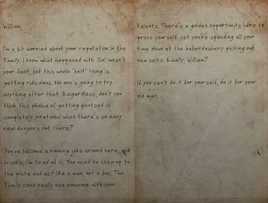 William,
I'm a bit worried about your reputation in the
Family. I know what happened with Sal wasn't
your fault, but this whole "bolt" thing is
getting ridiculous. No one's going to try
anything after that. Regardless, don't you
think this choice of getting pantsed is
completely irrational when there's so many
real dangers out there?
You've become a running joke around here, and
frankly, I'm tired of it. You need to step up to
the plate and act like a man, not a boy. The
Family could really use someone with your
talents. There's a golden opportunity here to
prove yourself, yet you're spending all your
time down at the haberdashery picking out
new suits. Really, William?
If you can't do it for yourself, do it for your
old man.